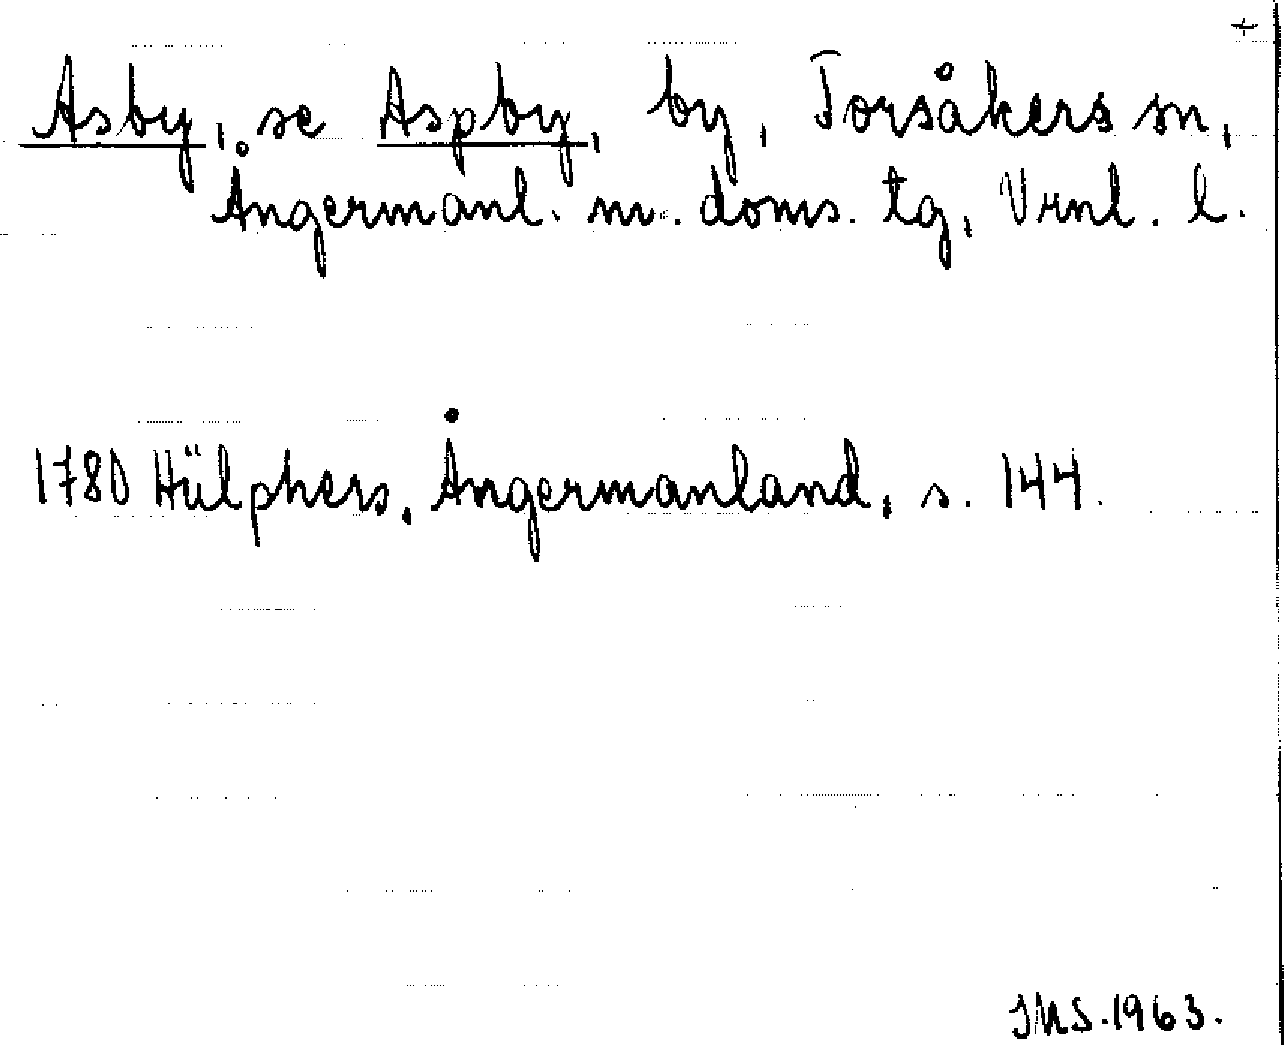 +
Asby, se Aspby, by, Torsåkers sn,
Ångermanl. m. doms. tg, Vrnl. l.
1780 Hülphers, Ångermanland, s. 144.
JMS.1963.